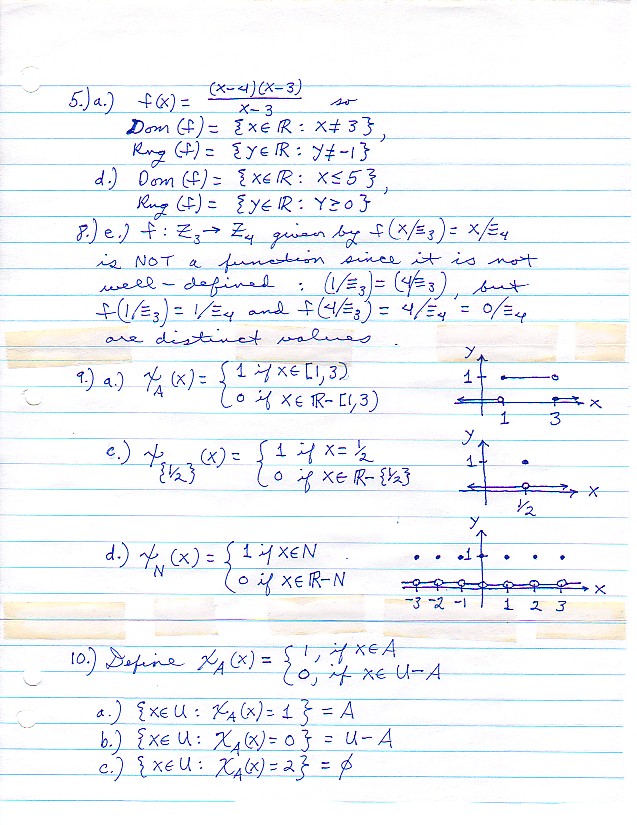 5.) a.) f(x) = (x-4)(x-3) / x-3 so
Dom (f) = {x∈ℝ : x≠3},
Rng (f) = {y∈ℝ : y≠-1}
d.) Dom (f) = {x∈ℝ : x≤5},
Rng (f) = {y∈ℝ : y≥0}
8.) e.) f : ℤ₃ → ℤ₄ given by f(x/≡₃) = x/≡₄
is NOT a function since it is not
well-defined : (1/≡₃) = (4/≡₃), but
f(1/≡₃) = 1/≡₄ and f(4/≡₃) = 4/≡₄ = 0/≡₄
are distinct values.
9.) a.) χ_A (x) = { 1 if x∈[1,3)
0 if x∈ℝ-[1,3)
y
1
x
1 3
c.) χ_{1/2} (x) = { 1 if x=1/2
0 if x∈ℝ-{1/2}
y
1
x
1/2
d.) χ_N (x) = { 1 if x∈N
0 if x∈ℝ-N
y
1
x
-3 -2 -1 1 2 3
10.) Define χ_A(x) = { 1, if x∈A
0, if x∈U-A
a.) {x∈U : χ_A(x)=1} = A
b.) {x∈U : χ_A(x)=0} = U-A
c.) {x∈U : χ_A(x)=2} = ∅